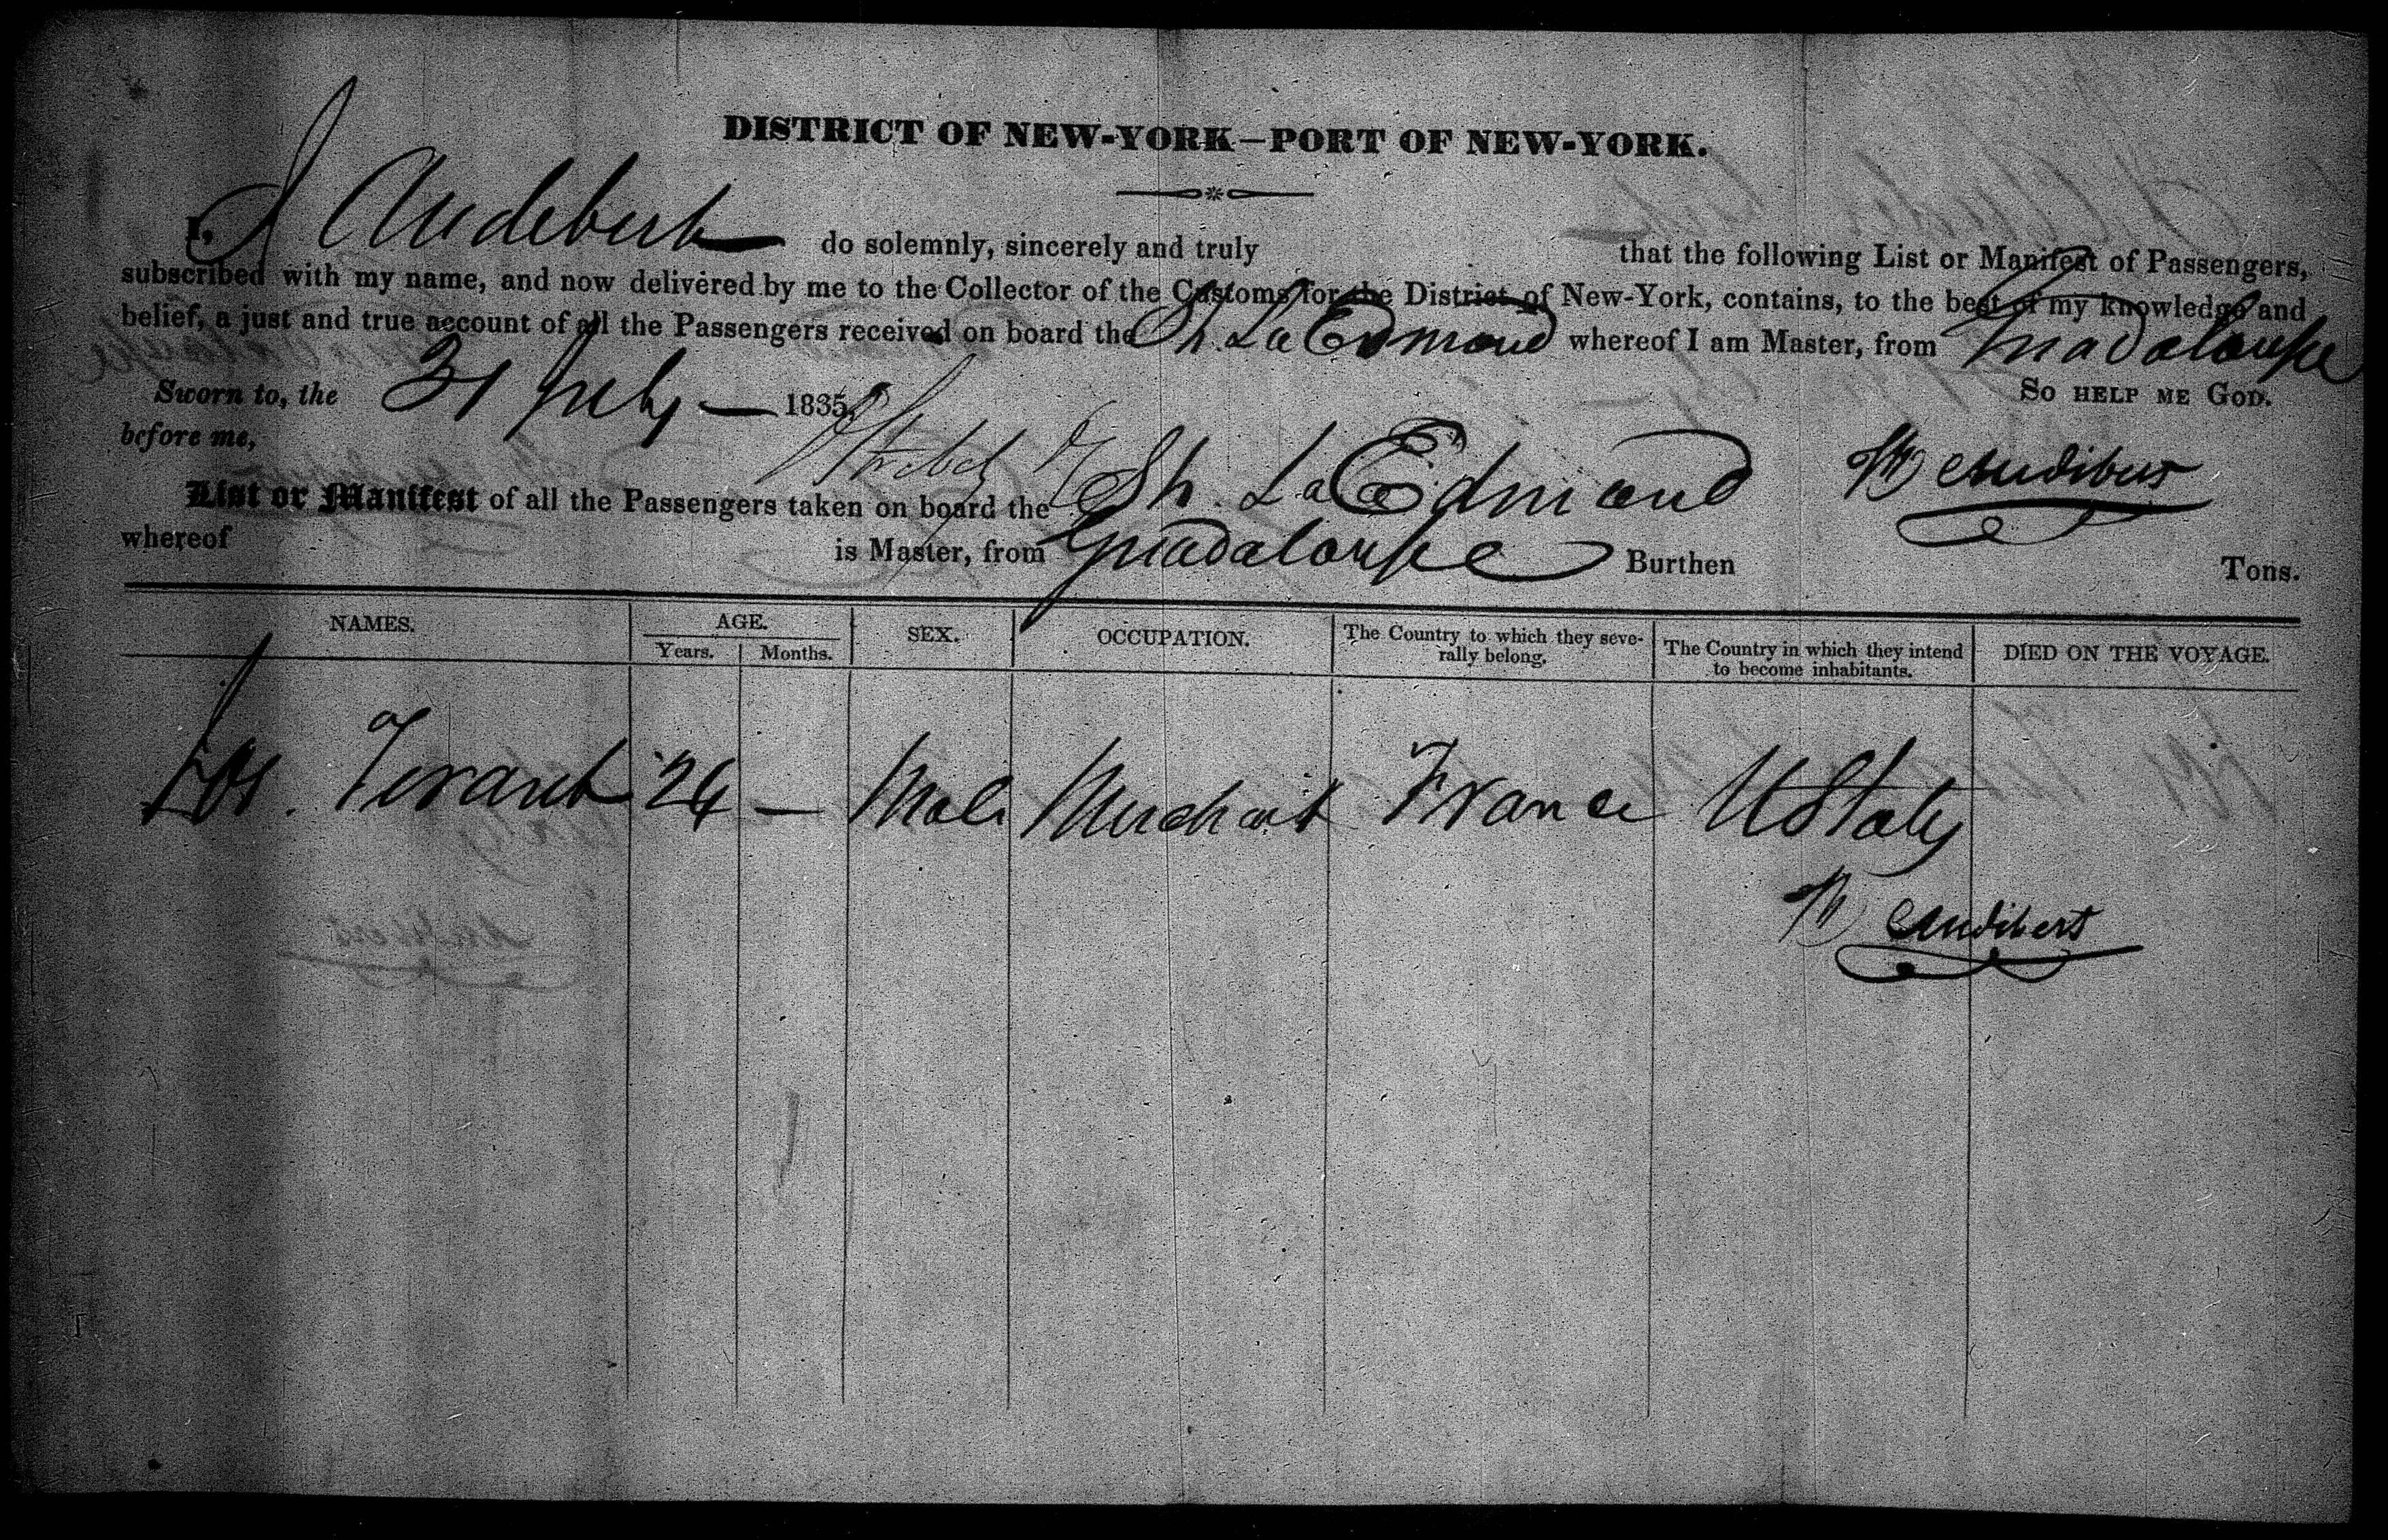 DISTRICT OF NEW-YORK—PORT OF NEW-YORK.
I, J Audebert do solemnly, sincerely and truly that the following List or Manifest of Passengers,
subscribed with my name, and now delivered by me to the Collector of the Customs for the District of New-York, contains, to the best of my knowledge and
belief, a just and true account of all the Passengers received on board the Sh. La Edmond whereof I am Master, from Guadaloupe
Sworn to, the 31 July — 1835 So HELP ME GOD.
before me,
Audibert
List or Manifest of all the Passengers taken on board the Sh. La Edmond
whereof is Master, from Guadaloupe Burthen Tons.
NAMES. AGE. SEX. OCCUPATION. The Country to which they severally belong. The Country in which they intend to become inhabitants. DIED ON THE VOYAGE.
Years. Months.
24 — Male Merchant France U States
Audibert